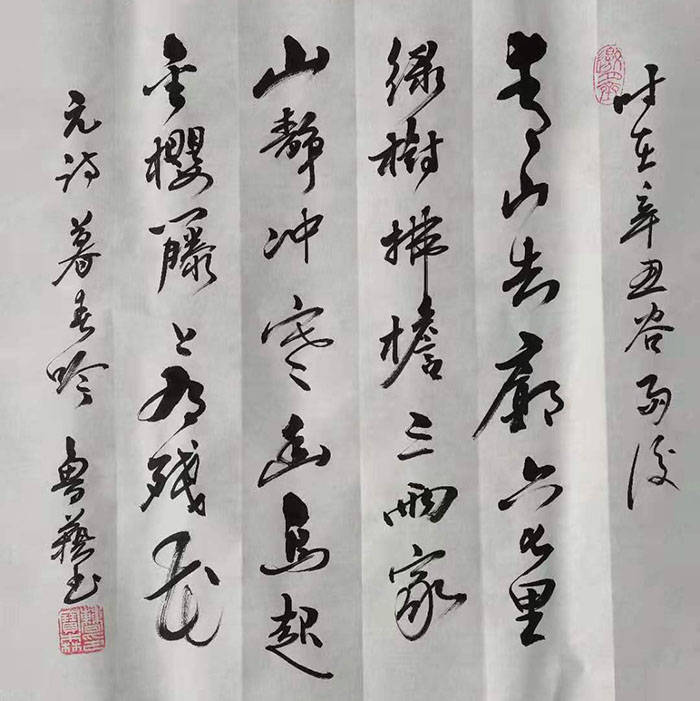 时在辛丑谷雨后
青山去廓六七里
绿树拂檐三两家
山静冲寒幽鸟起
樱藤上残花
元诗暮春吟 鲁艺书